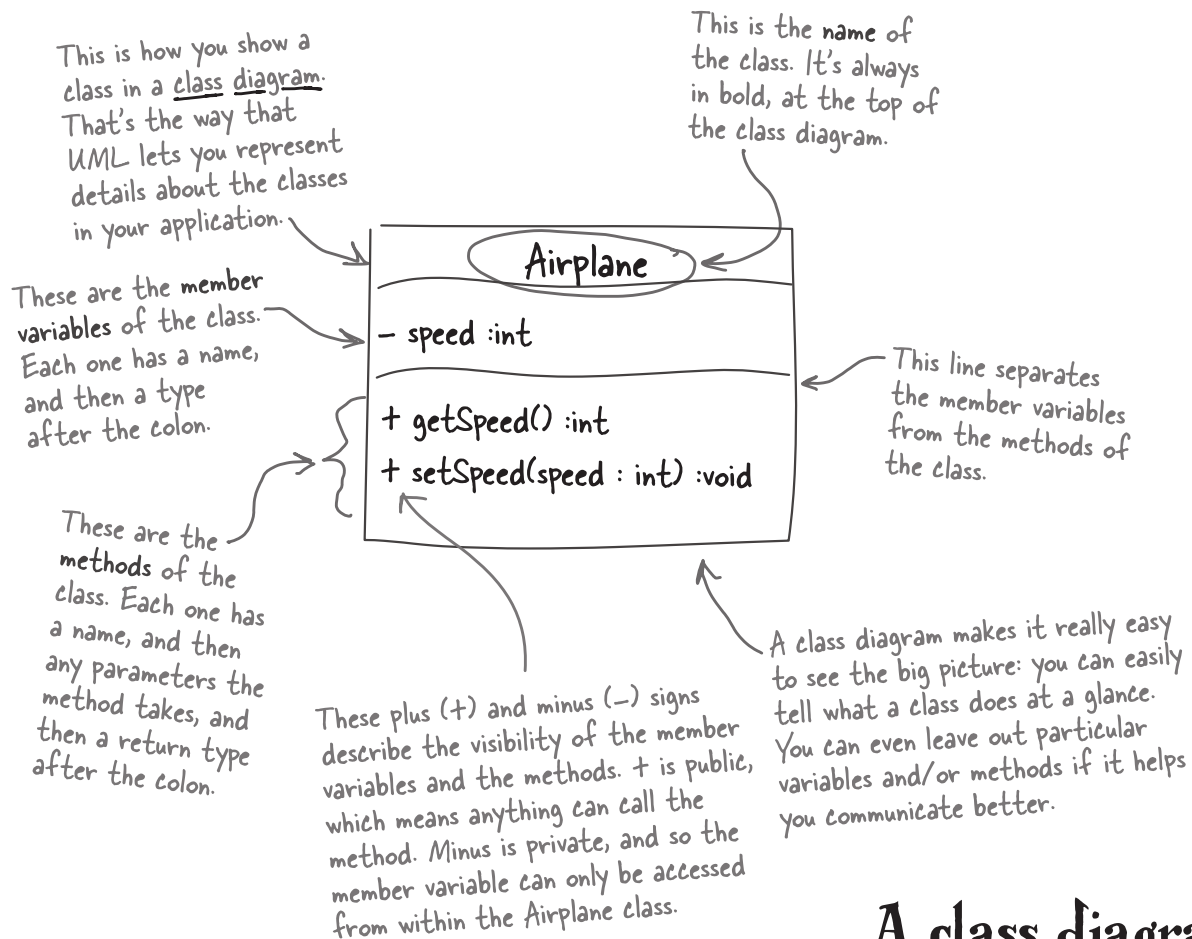 This is how you show a
class in a class diagram.
That's the way that
UML lets you represent
details about the classes
in your application.
This is the name of
the class. It's always
in bold, at the top of
the class diagram.
Airplane
These are the member
variables of the class.
Each one has a name,
and then a type
after the colon.
– speed :int
This line separates
the member variables
from the methods of
the class.
+ getSpeed() :int
+ setSpeed(speed : int) :void
These are the
methods of the
class. Each one has
a name, and then
any parameters the
method takes, and
then a return type
after the colon.
These plus (+) and minus (–) signs
describe the visibility of the member
variables and the methods. + is public,
which means anything can call the
method. Minus is private, and so the
member variable can only be accessed
from within the Airplane class.
A class diagram makes it really easy
to see the big picture: you can easily
tell what a class does at a glance.
You can even leave out particular
variables and/or methods if it helps
you communicate better.
A class diagra